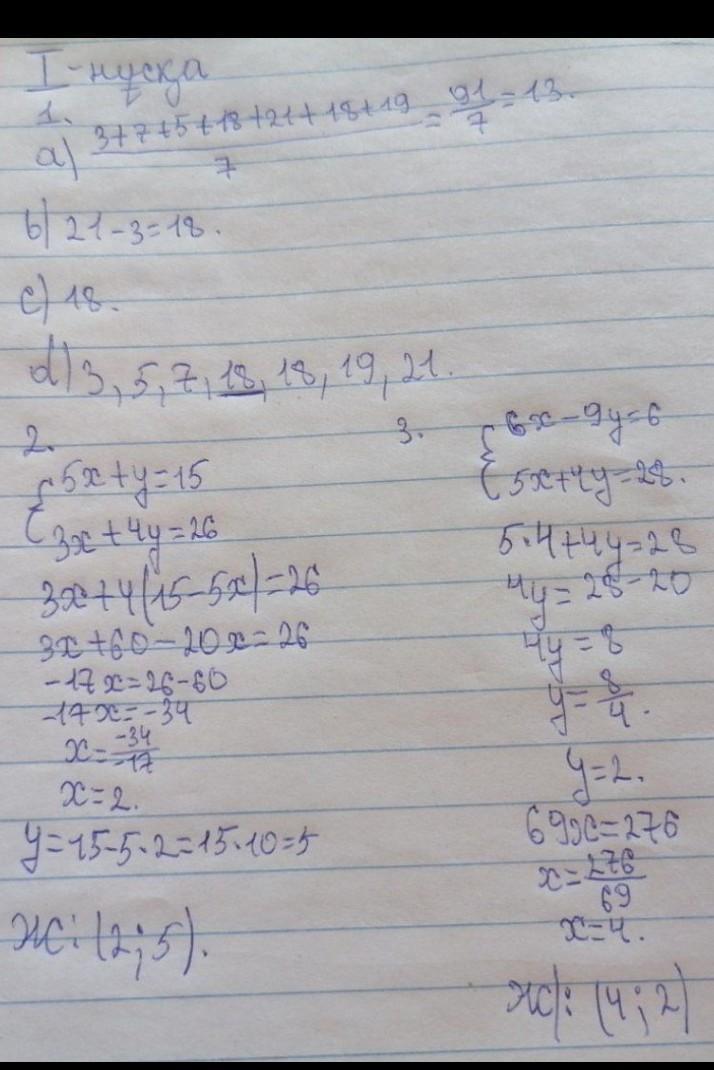 I-нұсқа
1.
a) (3+7+5+18+21+18+19)/7 = 91/7 = 13.
b) 21-3=18.
c) 18.
d) 3, 5, 7, 18, 18, 19, 21.
2.
{5x+y=15
{3x+4y=26
3x+4(15-5x)=26
3x+60-20x=26
-17x=26-60
-17x=-34
x=-34/-17
x=2.
y=15-5·2=15·10=5
Ж: (2;5).
3.
{6x-9y=6
{5x+4y=28.
5·4+4y=28
4y=28-20
4y=8
y=8/4.
y=2.
69x=276
x=276/69
x=4.
Ж: (4;2)